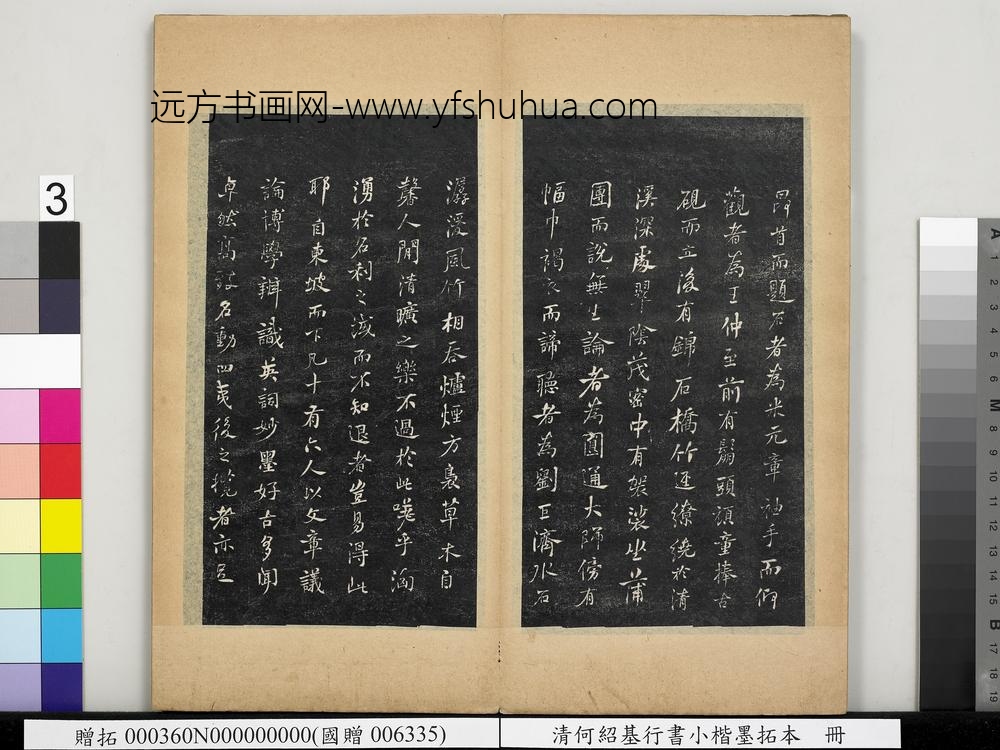 远方书画网-www.yfshuhua.com
3
昂首而題石者為米元章袖手而仰
觀者為王仲至前有鬅頭頑童捧古
硯而立後有錦石橋竹逕繚繞於清
溪深處翠陰茂密中有袈裟坐蒲
團而說無生論者為圓通大師傍有
幅巾褐衣而諦聽者為劉巨濟水石
潺湲風竹相吞爐煙方裊草木自
馨人間清曠之樂不過於此嗟乎洶
湧於名利之域而不知退者豈易得此
耶自東坡而下凡十有六人以文章議
論博學辨識英詞妙墨好古多聞
卓然高致名動四夷後之攬者亦足
贈拓 000360N000000000(國贈 006335)
清何紹基行書小楷墨拓本 冊
A 1 2 3 4 5 M 8 9 10 11 12 13 14 15 B 17 18 19